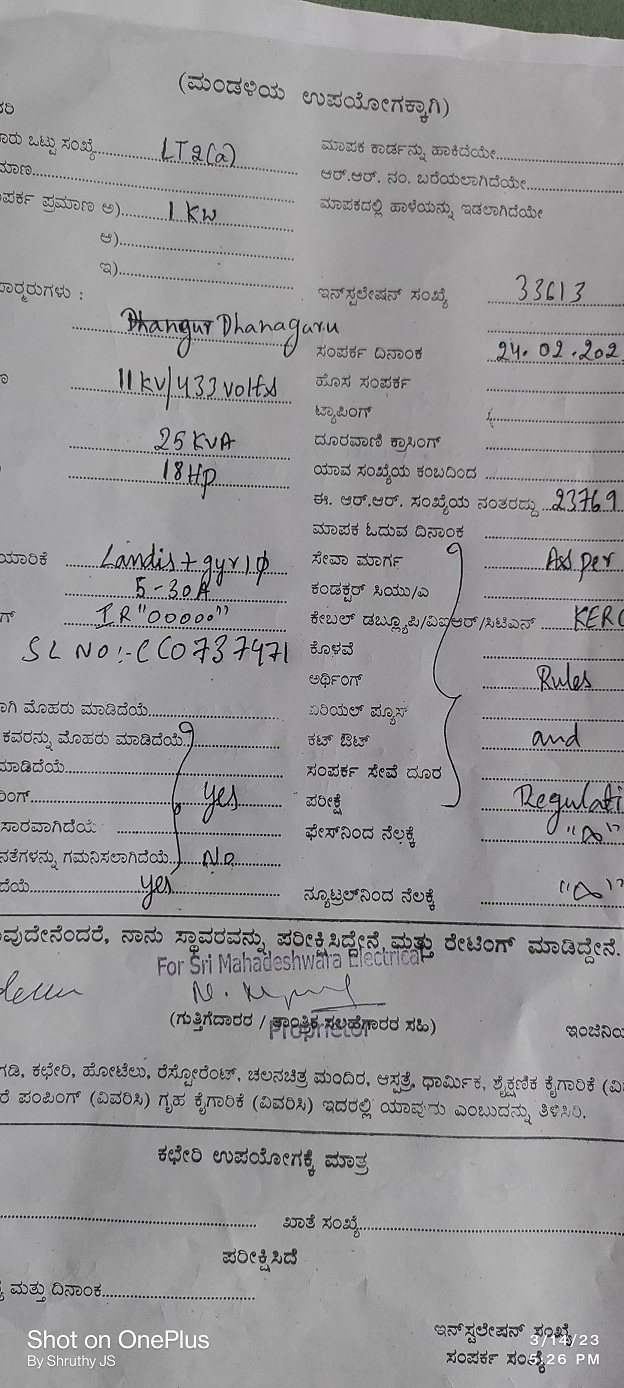 (ಮಂಡಳಿಯ ಉಪಯೋಗಕ್ಕಾಗಿ)
ಒಟ್ಟು ಸಂಖ್ಯೆ LT2(a) ಮಾಪಕ ಕಾರ್ಡನ್ನು ಹಾಕಿದೆಯೇ
ಆರ್.ಆರ್. ನಂ. ಬರೆಯಲಾಗಿದೆಯೇ
ಪ್ರಮಾಣ ಅ) 1 KW ಮಾಪಕದಲ್ಲಿ ಹಾಳೆಯನ್ನು ಇಡಲಾಗಿದೆಯೇ
ಆ)
ಇ)
ಇನ್‌ಸ್ಟಲೇಷನ್ ಸಂಖ್ಯೆ 33613
Dhangur Dhanaguru
ಸಂಪರ್ಕ ದಿನಾಂಕ 24.02.202
11 KV/433 volts ಹೊಸ ಸಂಪರ್ಕ
ಟ್ಯಾಪಿಂಗ್
25 KVA ದೂರವಾಣಿ ಕ್ರಾಸಿಂಗ್
18 HP ಯಾವ ಸಂಖ್ಯೆಯ ಕಂಬದಿಂದ
ಈ. ಆರ್.ಆರ್. ಸಂಖ್ಯೆಯ ನಂತರದ್ದು 23769
ಮಾಪಕ ಓದುವ ದಿನಾಂಕ
Landis + gyr 1ϕ ಸೇವಾ ಮಾರ್ಗ As per
5-30A ಕಂಡಕ್ಟರ್ ಸಿಯು/ಎ
IR "00000" ಕೇಬಲ್ ಡಬ್ಲ್ಯೂಪಿ/ವಿಐಆರ್/ಸಿಟಿಎಸ್ KERC
SL NO:- CC0737471 ಕೊಳವೆ
ಅರ್ಥಿಂಗ್ Rules
ಮೊಹರು ಮಾಡಿದೆಯೆ ಏರಿಯಲ್ ಫ್ಯೂಸ್
ಕವರನ್ನು ಮೊಹರು ಮಾಡಿದೆಯೆ ಕಟ್ ಔಟ್ and
ಮಾಡಿದೆಯೆ ಸಂಪರ್ಕ ಸೇವೆ ದೂರ
yes ಪರೀಕ್ಷೆ Regulati
ಫೇಸ್‌ನಿಂದ ನೆಲಕ್ಕೆ "∞"
ಗಮನಿಸಲಾಗಿದೆಯೆ No
yes ನ್ಯೂಟ್ರಲ್‌ನಿಂದ ನೆಲಕ್ಕೆ "∞"
ನಾನು ಸ್ಥಾವರವನ್ನು ಪರೀಕ್ಷಿಸಿದ್ದೇನೆ ಮತ್ತು ರೇಟಿಂಗ್ ಮಾಡಿದ್ದೇನೆ.
For Sri Mahadeshwara Electrical
(ಗುತ್ತಿಗೆದಾರರ / ತಾಂತ್ರಿಕ ಸಲಹೆಗಾರರ ಸಹಿ)
Proprietor
ಕಛೇರಿ, ಹೋಟೆಲು, ರೆಸ್ಟೋರೆಂಟ್, ಚಲನಚಿತ್ರ ಮಂದಿರ, ಆಸ್ಪತ್ರೆ, ಧಾರ್ಮಿಕ, ಶೈಕ್ಷಣಿಕ ಕೈಗಾರಿಕೆ
ಪಂಪಿಂಗ್ (ವಿವರಿಸಿ) ಗೃಹ ಕೈಗಾರಿಕೆ (ವಿವರಿಸಿ) ಇದರಲ್ಲಿ ಯಾವುದು ಎಂಬುದನ್ನು ತಿಳಿಸಿರಿ.
ಕಛೇರಿ ಉಪಯೋಗಕ್ಕೆ ಮಾತ್ರ
ಖಾತೆ ಸಂಖ್ಯೆ
ಪರೀಕ್ಷಿಸಿದೆ
ಮತ್ತು ದಿನಾಂಕ
ಇನ್‌ಸ್ಟಲೇಷನ್ ಸಂಖ್ಯೆ
ಸಂಪರ್ಕ ಸಂಖ್ಯೆ
Shot on OnePlus
By Shruthy JS
3/14/23
5:26 PM